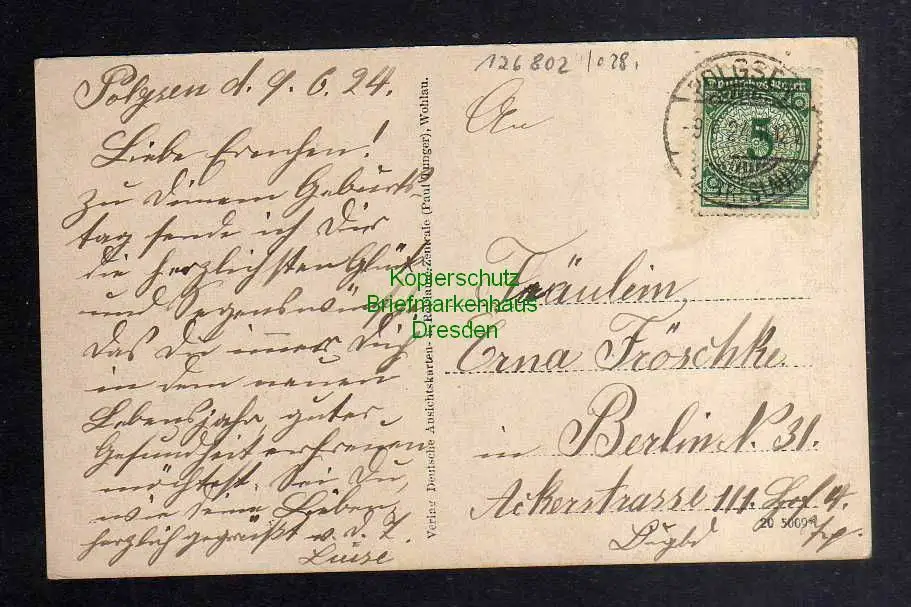 Polgsen d. 9. 6. 24.
Liebe Ernchen!
Zu Deinem Geburts-
tag sende ich Dir
die herzlichsten Glück
und Segenswünsche
das Du immer Dich
in dem neuen
Lebensjahr guter
Gesundheit erfreuen
möchtest. Sei Du,
wie Deine Lieben
herzlich gegrüßt v. d. T.
Luise
Verlag Deutsche Ansichtskarten- Reklame-Zentrale (Paul Bunger), Wohlau.
126802 /028.
An
POLGSEN
Deutsches Reich
5
Fräulein
Erna Fröschke
in Berlin N. 31.
Ackerstrasse 111. Hof 4.
20 5009
Koperschutz
Briefmarkenhaus
Dresden